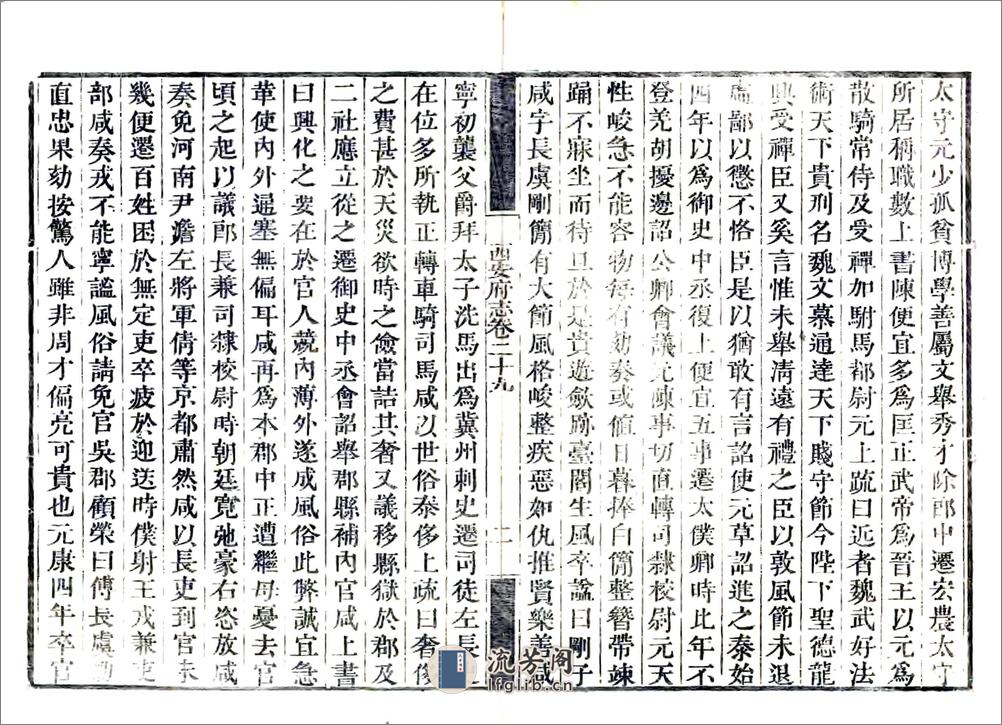 太守元少孤貧博學善屬文舉秀才除郎中遷宏農太守
所居稱職數上書陳便宜多爲匡正武帝爲晉王以元爲
散騎常侍及受禪加駙馬都尉元上疏曰近者魏武好法
術天下貴刑名魏文慕通達天下賤守節今陛下聖德龍
興受禪臣又奚言惟未舉清遠有禮之臣以敦風節未退
虛鄙以懲不恪臣是以猶敢有言詔使元草詔進之泰始
四年以爲御史中丞復上便宜五事遷太僕卿時比年不
登羌胡擾邊詔公卿會議元陳事切直轉司隸校尉元天
性峻急不能容物每有劾奏或值日暮捧白簡整簪帶竦
踊不寐坐而待旦於是貴遊歛跡臺閣生風卒諡曰剛子
咸字長虞剛簡有大節風格峻整疾惡如仇推賢樂善咸
西安府志卷二十九
二
寧初襲父爵拜太子洗馬出爲冀州刺史遷司徒左長
在位多所執正轉車騎司馬咸以世俗泰侈上疏曰奢侈
之費甚於天災欲時之儉當詰其奢又議移縣獄於郡及
二社應立從之遷御史中丞會詔舉郡縣補內官咸上書
曰興化之要在於官人競內薄外遂成風俗此弊誠宜急
革使內外通塞無偏耳咸再爲本郡中正遭繼母憂去官
頃之起以議郎長兼司隸校尉時朝廷寬弛豪右恣放咸
奏免河南尹澹左將軍倩等京都肅然咸以長吏到官未
幾便遷百姓困於無定吏卒疲於迎送時僕射王戎兼吏
部咸奏戎不能寧謐風俗請免官吳郡顧榮曰傅長虞勁
直忠果劾按驚人雖非周才偏亮可貴也元康四年卒官
流芳閣
lfglib.cn